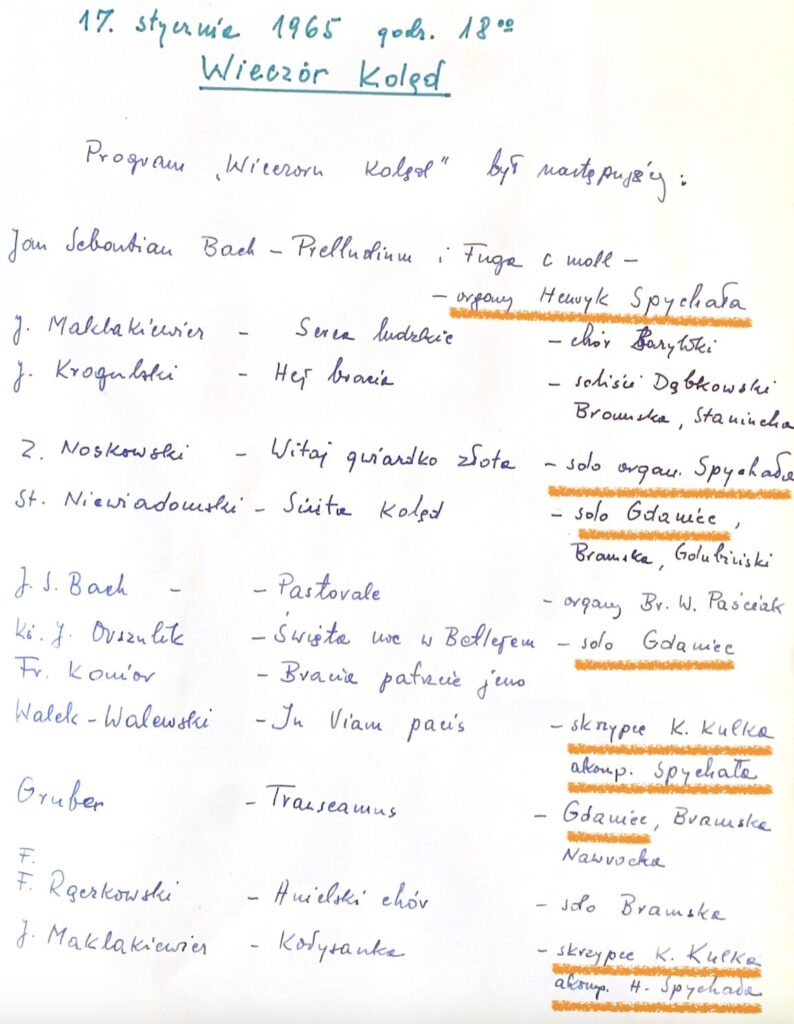 17. stycznia 1965 godz. 18ºº
Wieczór Kolęd
Program „Wieczoru Kolęd" był następujący:
Jan Sebastian Bach – Prelludium i Fuga c moll –
– organy Henryk Spychała
J. Maklakiewicz – Serca ludzkie – chór Barylski
J. Krogulski – Hej bracia – soliści Dąbkowski
Bramska, Stanincha
Z. Noskowski – Witaj gwiazdko złota – solo organ. Spychała
St. Niewiadomski – Suita Kolęd – solo Gdaniec,
Bramska, Golubiński
J. S. Bach – – Pastorale – organy Br. W. Paściak
ks. J. Orszulik – Święta noc w Betlejem – solo Gdaniec
Fr. Konior – Bracia patrzcie jeno
Wałek-Walewski – In Viam pacis – skrzypce K. Kulka
akomp. Spychała
Gruber – Transeamus – Gdaniec, Bramska
Nawrocka
F.
F. Rączkowski – Anielski chór – solo Bramska
J. Maklakiewicz – Kołysanka – skrzypce K. Kulka
akomp. H. Spychała